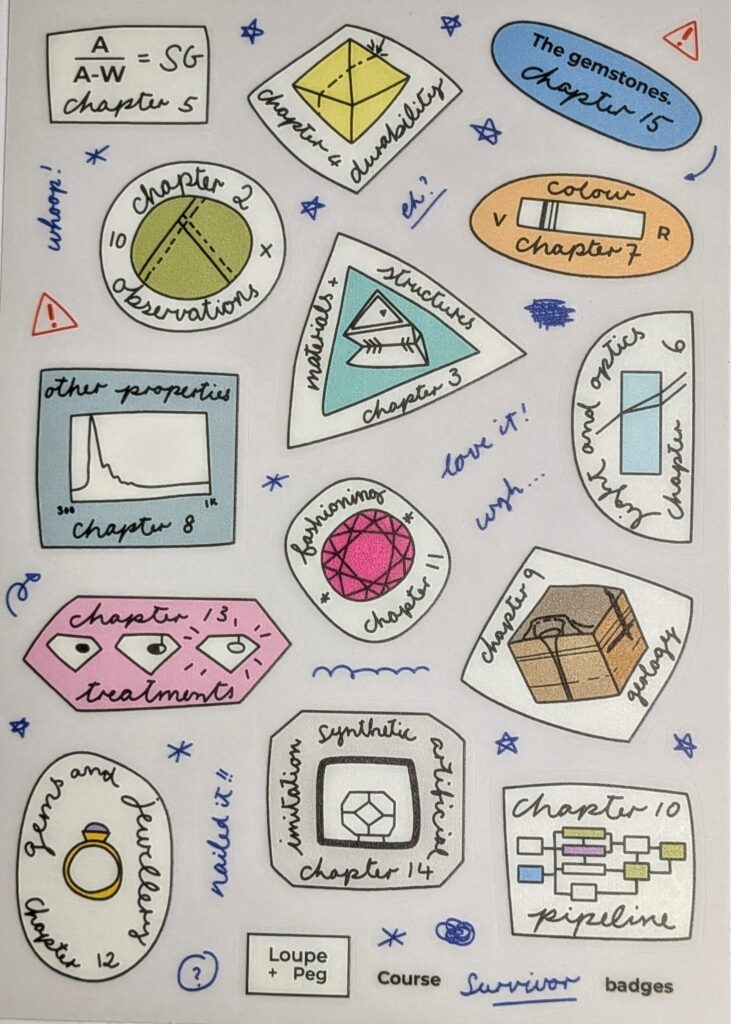 A
A-W = SG
chapter 5
chapter 4
durability
The gemstones.
chapter 15
whoop!
chapter 2
10 x
observations
eh?
colour
V R
chapter 7
materials + structures
chapter 3
light and optics
chapter 6
other properties
300 1K
chapter 8
love it!
ugh...
fashioning
chapter 11
chapter 9
geology
chapter 13,
treatments
synthetic
imitation
artificial
chapter 14
gems and jewellery
chapter 12
nailed it!!
chapter 10
pipeline
?
Loupe
+ Peg
Course Survivor badges